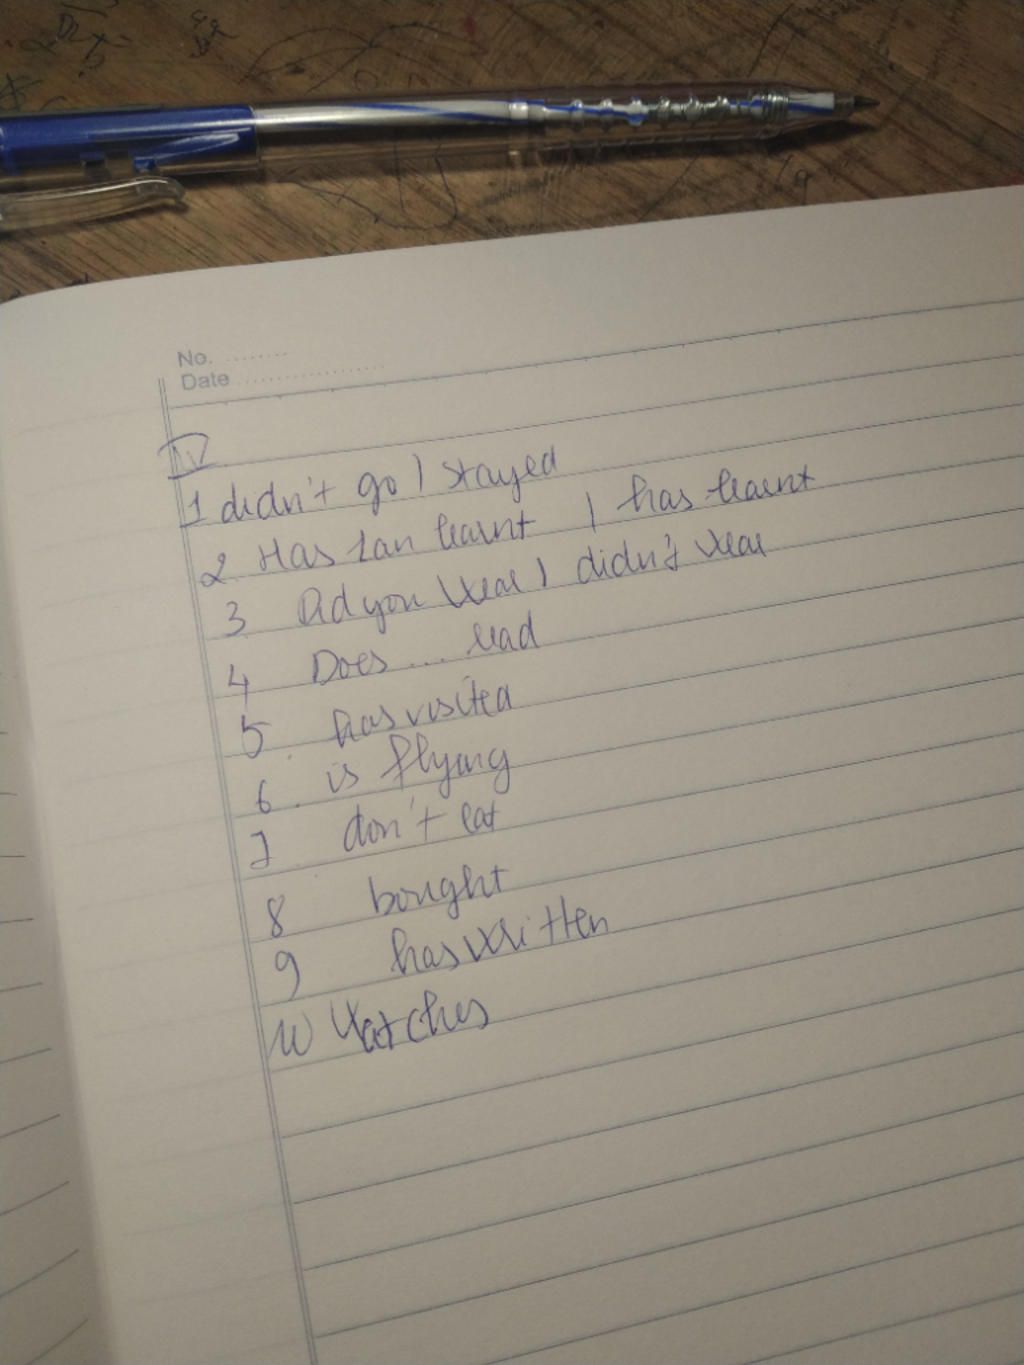 No. ........
Date ..................
IV
1 didn't go / stayed
2 Has Ian learnt / has learnt
3 Did you wear / didn't wear
4 Does ... read
5. has visited
6. is flying
7 don't eat
8 bought
9 has written
10 Watches